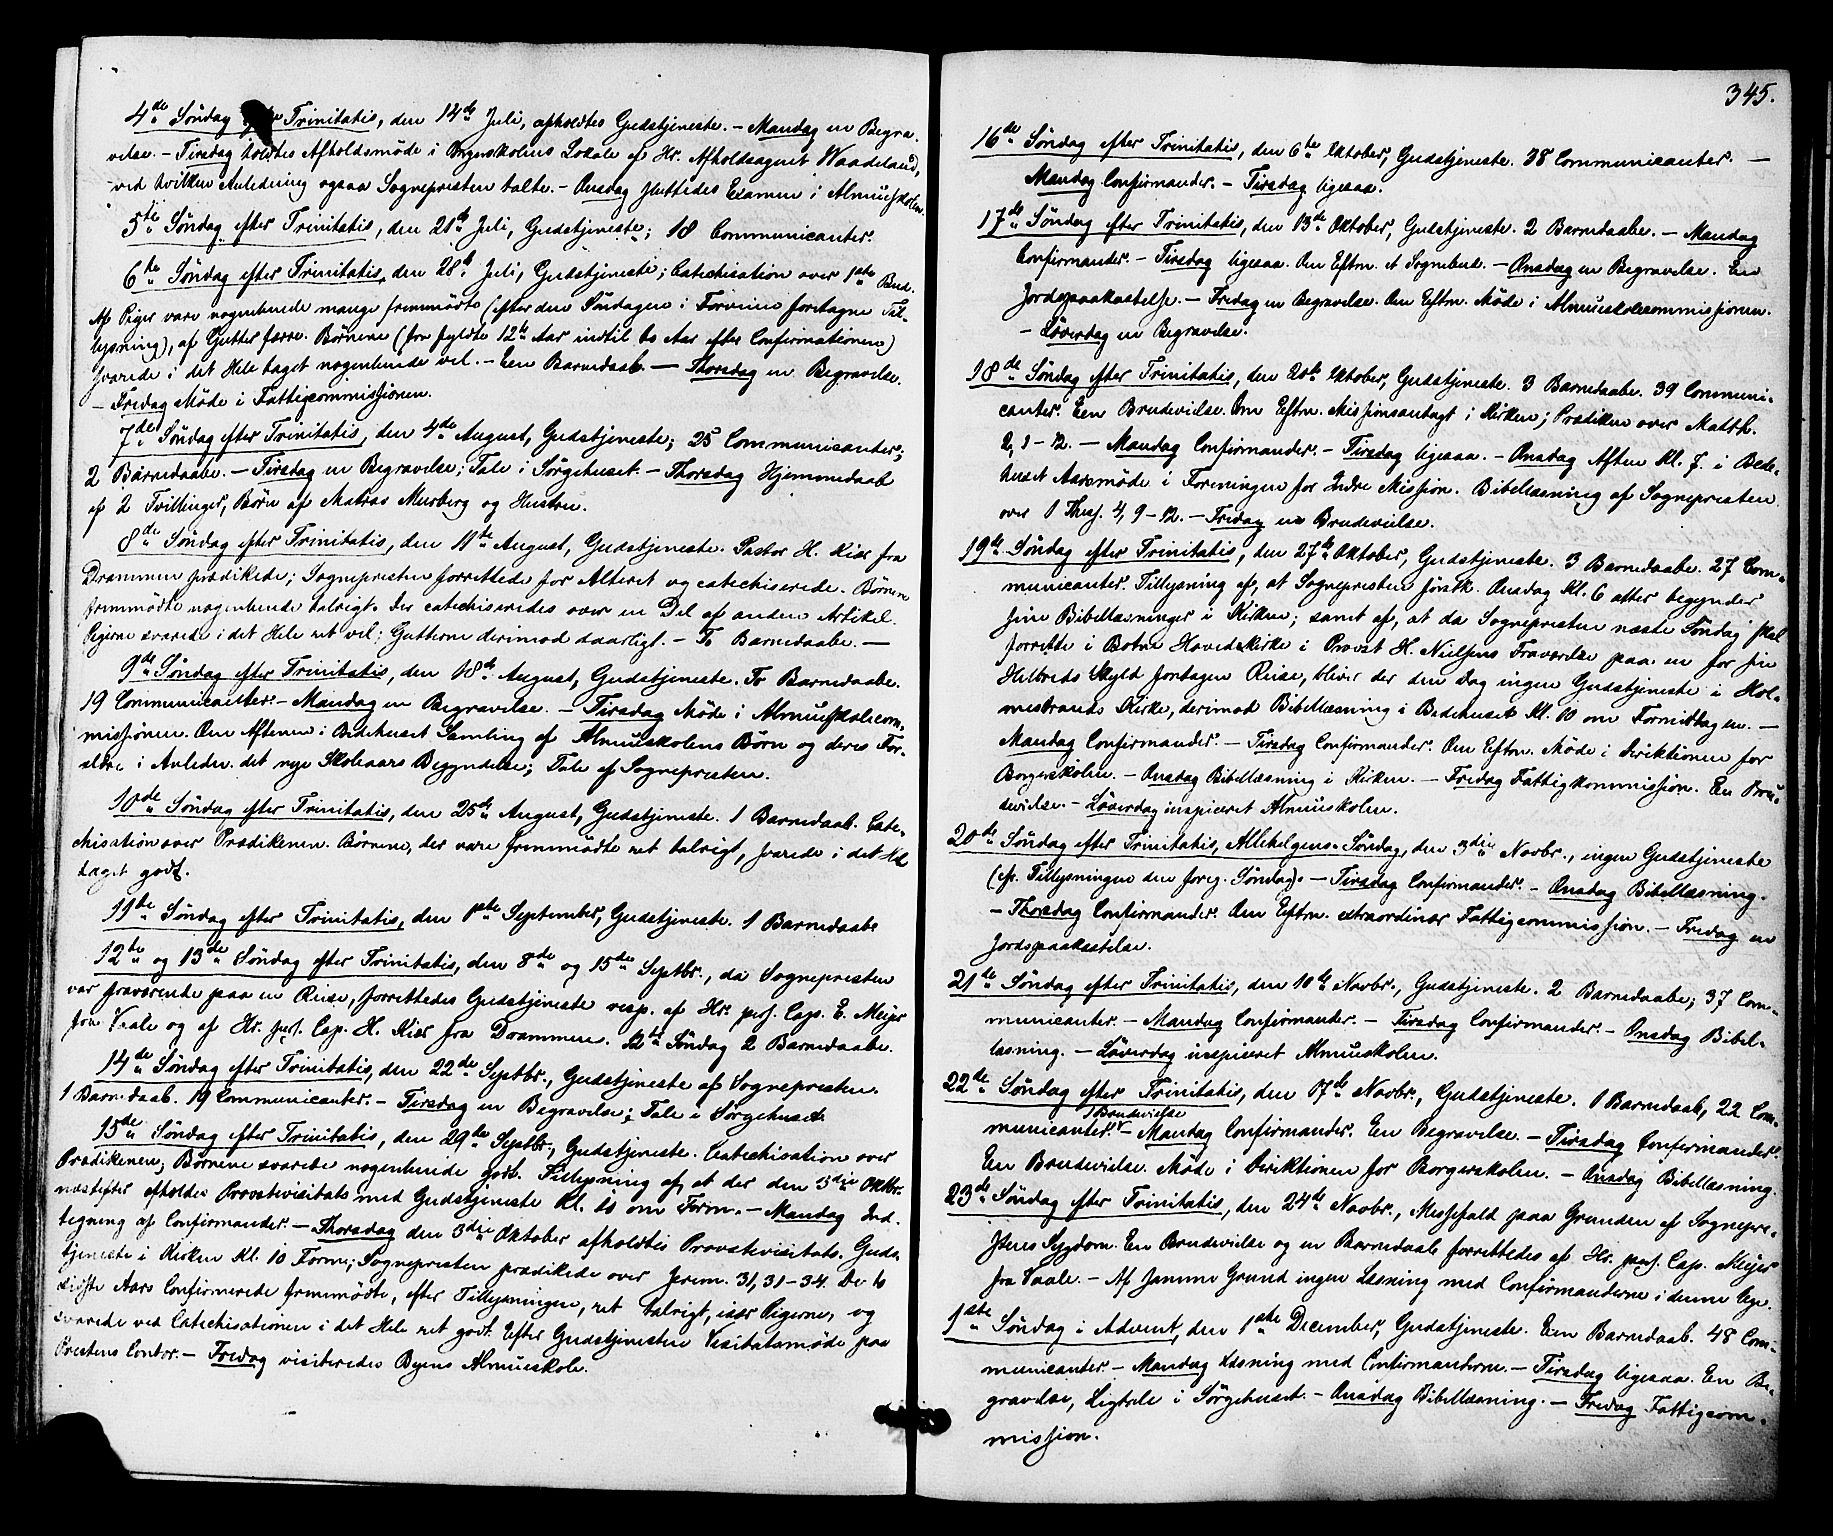 4de Søndag efter Trinitatis, den 14de Juli, afholdtes Gudstjeneste. – Mandag en Begra-
velse. – Tirsdag holdtes Afholdsmøde i Borgerskolens Lokale af Hr. Afholdsagent Waadeland,
ved hvilken Anledning ogsaa Sognepresten talte. – Onsdag sluttedes Examen i Almueskolen.
5te Søndag efter Trinitatis, den 21de Juli, Gudstjeneste; 18 Communicanter.
6te Søndag efter Trinitatis, den 28de Juli, Gudstjeneste; Catechisation over 1ste Bud.
Af Piger vare nogenlunde mange fremmødte (efter den Søndagen i Forveien foretagne Til-
lysning), af Gutter færre. Børnene (fra fyldte 12te Aar indtil to Aar efter Confirmationen)
svarede i det Hele taget nogenlunde vel. – Een Barnedaab. – Thorsdag en Begravelse.
– Fredag Møde i Fattigcommissionen.
7de Søndag efter Trinitatis, den 4de August, Gudstjeneste; 25 Communicanter;
2 Barnedaabe. – Tirsdag en Begravelse; Tale i Sørgehuset. – Thorsdag Hjemmedaab
af 2 Tvillinger, Børn af Matros Mursberg og Hustru.
8de Søndag efter Trinitatis, den 11te August, Gudstjeneste. Pastor H. Kiær fra
Drammen prædikede; Sognepresten forrettede for Alteret og catechiserede. Børnene
fremmødte nogenlunde talrigt. Der catechiseredes over en Del af anden Artikel.
Pigerne svarede i det Hele ret vel; Gutterne derimod daarligt. – To Barnedaabe. –
9de Søndag efter Trinitatis, den 18de August, Gudstjeneste. To Barnedaabe.
19 Communicanter. – Mandag en Begravelse. – Tirsdag Møde i Almueskolecom-
missionen. Om Aftenen i Bedehuset Samling af Almueskolens Børn og deres For-
ældre i Anledn. det nye Skoleaars Begyndelse; Tale af Sognepresten.
10de Søndag efter Trinitatis, den 25de August, Gudstjeneste. 1 Barnedaab. Cate-
chisation over Prædikenen. Børnene, der vare fremmødte ret talrigt, svarede i det Hele
taget godt.
11te Søndag efter Trinitatis, den 1ste September, Gudstjeneste. 1 Barnedaabe
12te og 13de Søndag efter Trinitatis, den 8de og 15de Septbr., da Sognepresten
var fraværende paa en Reise, forrettedes Gudstjeneste resp. af Hr. pers. Cap. E. Meijer
fra Vaale og af Hr. pers. Cap. H. Kiær fra Drammen. 12te Søndag 2 Barnedaabe.
14de Søndag efter Trinitatis, den 22de Septbr., Gudstjeneste af Sognepresten.
1 Barnedaab. 19 Communicanter. – Tirsdag en Begravelse; Tale i Sørgehuset.
15de Søndag efter Trinitatis, den 29de Septbr., Gudstjeneste. Catechisation over
Prædikenen; Børnene svarede nogenlunde godt. Tillysning af, at der den 3die Oktbr.
næstefter afholdes Provstevisitats med Gudstjeneste Kl. 10 om Form. – Mandag Ind-
tegning af Confirmander. – Thorsdag den 3die Oktober afholdtes Provstevisitats. Guds-
tjeneste i Kirken Kl. 10 Form.; Sognepresten prædikede over Jerem. 31, 31–34. De to
sidste Aars Confirmerede fremmødte, efter Tillysningen, ret talrigt, især Pigerne, og
svarede ved Catechisationen i det Hele ret godt. Efter Gudstjenesten Visitatsmøde paa
Prestens Contor. – Fredag visiteredes Byens Almueskole.
345.
16de Søndag efter Trinitatis, den 6te Oktober, Gudstjeneste. 38 Communicanter. –
Mandag Confirmander. – Tirsdag ligesaa.
17de Søndag efter Trinitatis, den 13de Oktober, Gudstjeneste. 2 Barnedaabe. – Mandag
Confirmander. – Tirsdag ligesaa. Om Eftm. et Sognebud. – Onsdag en Begravelse. En
Jordspaakastelse. – Fredag en Begravelse. Om Eftm. Møde i Almueskolecommissionen.
– Løverdag en Begravelse.
18de Søndag efter Trinitatis, den 20de Oktober, Gudstjeneste. 3 Barnedaabe. 39 Communi-
canter. Een Brudevielse. Om Eftm. Missionsandagt i Kirken; Prædiken over Matth.
2, 1–12. – Mandag Confirmander. – Tirsdag ligesaa. – Onsdag Aften Kl. 7. i Bede-
huset Aarsmøde i Foreningen for Indre Mission. Bibellæsning af Sognepresten
over 1 Thess. 4, 9–12. – Fredag en Brudevielse.
19de Søndag efter Trinitatis, den 27de Oktober, Gudstjeneste. 3 Barnedaabe. 27 Com-
municanter. Tillysning af, at Sognepresten førstk. Onsdag Kl. 6 atter begynder
sine Bibellæsninger i Kirken; samt af, at da Sognepresten næste Søndag skal
forrette i Botne Hovedkirke i Provst H. Nielsens Fraværelse paa en for sin
Helbreds Skyld foretagen Reise, bliver der den Dag ingen Gudstjeneste i Hol-
mestrands Kirke, derimod Bibellæsning i Bedehuset Kl. 10 om Formiddagen. –
Mandag Confirmander. – Tirsdag Confirmander. Om Eftm. Møde i Direktionen for
Borgerskolen. – Onsdag Bibellæsning i Kirken. – Fredag Fattigkommission. En Bru-
devielse. – Løverdag inspiceret Almueskolen.
20de Søndag efter Trinitatis, Allehelgens-Søndag, den 3die Novbr., ingen Gudstjeneste
(cfr. Tillysningen den foreg. Søndag). – Tirsdag Confirmander. – Onsdag Bibellæsning.
– Thorsdag Confirmander. Om Eftm. extraordinær Fattigcommission. – Fredag en
Jordspaakastelse.
21de Søndag efter Trinitatis, den 10de Novbr., Gudstjeneste. 2 Barnedaabe; 37 Com-
municanter. – Mandag Confirmander. – Tirsdag Confirmander. – Onsdag Bibel-
læsning. – Løverdag inspiceret Almueskolen.
22de Søndag efter Trinitatis, den 17de Novbr., Gudstjeneste. 1 Barnedaab, 22 Com-
1 Brudevielse
municanter. – Mandag Confirmander. En Begravelse. – Tirsdag Confirmander.
En Brudevielse. Møde i Direktionen for Borgerskolen. – Onsdag Bibellæsning.
23de Søndag efter Trinitatis, den 24de Novbr., Messefald paa Grunden af Sognepre-
stens Sygdom. En Brudevielse og en Barnedaab forrettedes af Hr. pers. Cap. Meijer
fra Vaale. – Af samme Grund ingen Læsning med Confirmanderne i denne Uge.
1ste Søndag i Advent, den 1ste December, Gudstjeneste. Een Barnedaab. 48 Com-
municanter. – Mandag Læsning med Confirmanderne. – Tirsdag ligesaa. En Be-
gravelse, Ligtale i Sørgehuset. – Onsdag Bibellæsning. – Fredag Fattigcom-
mission.